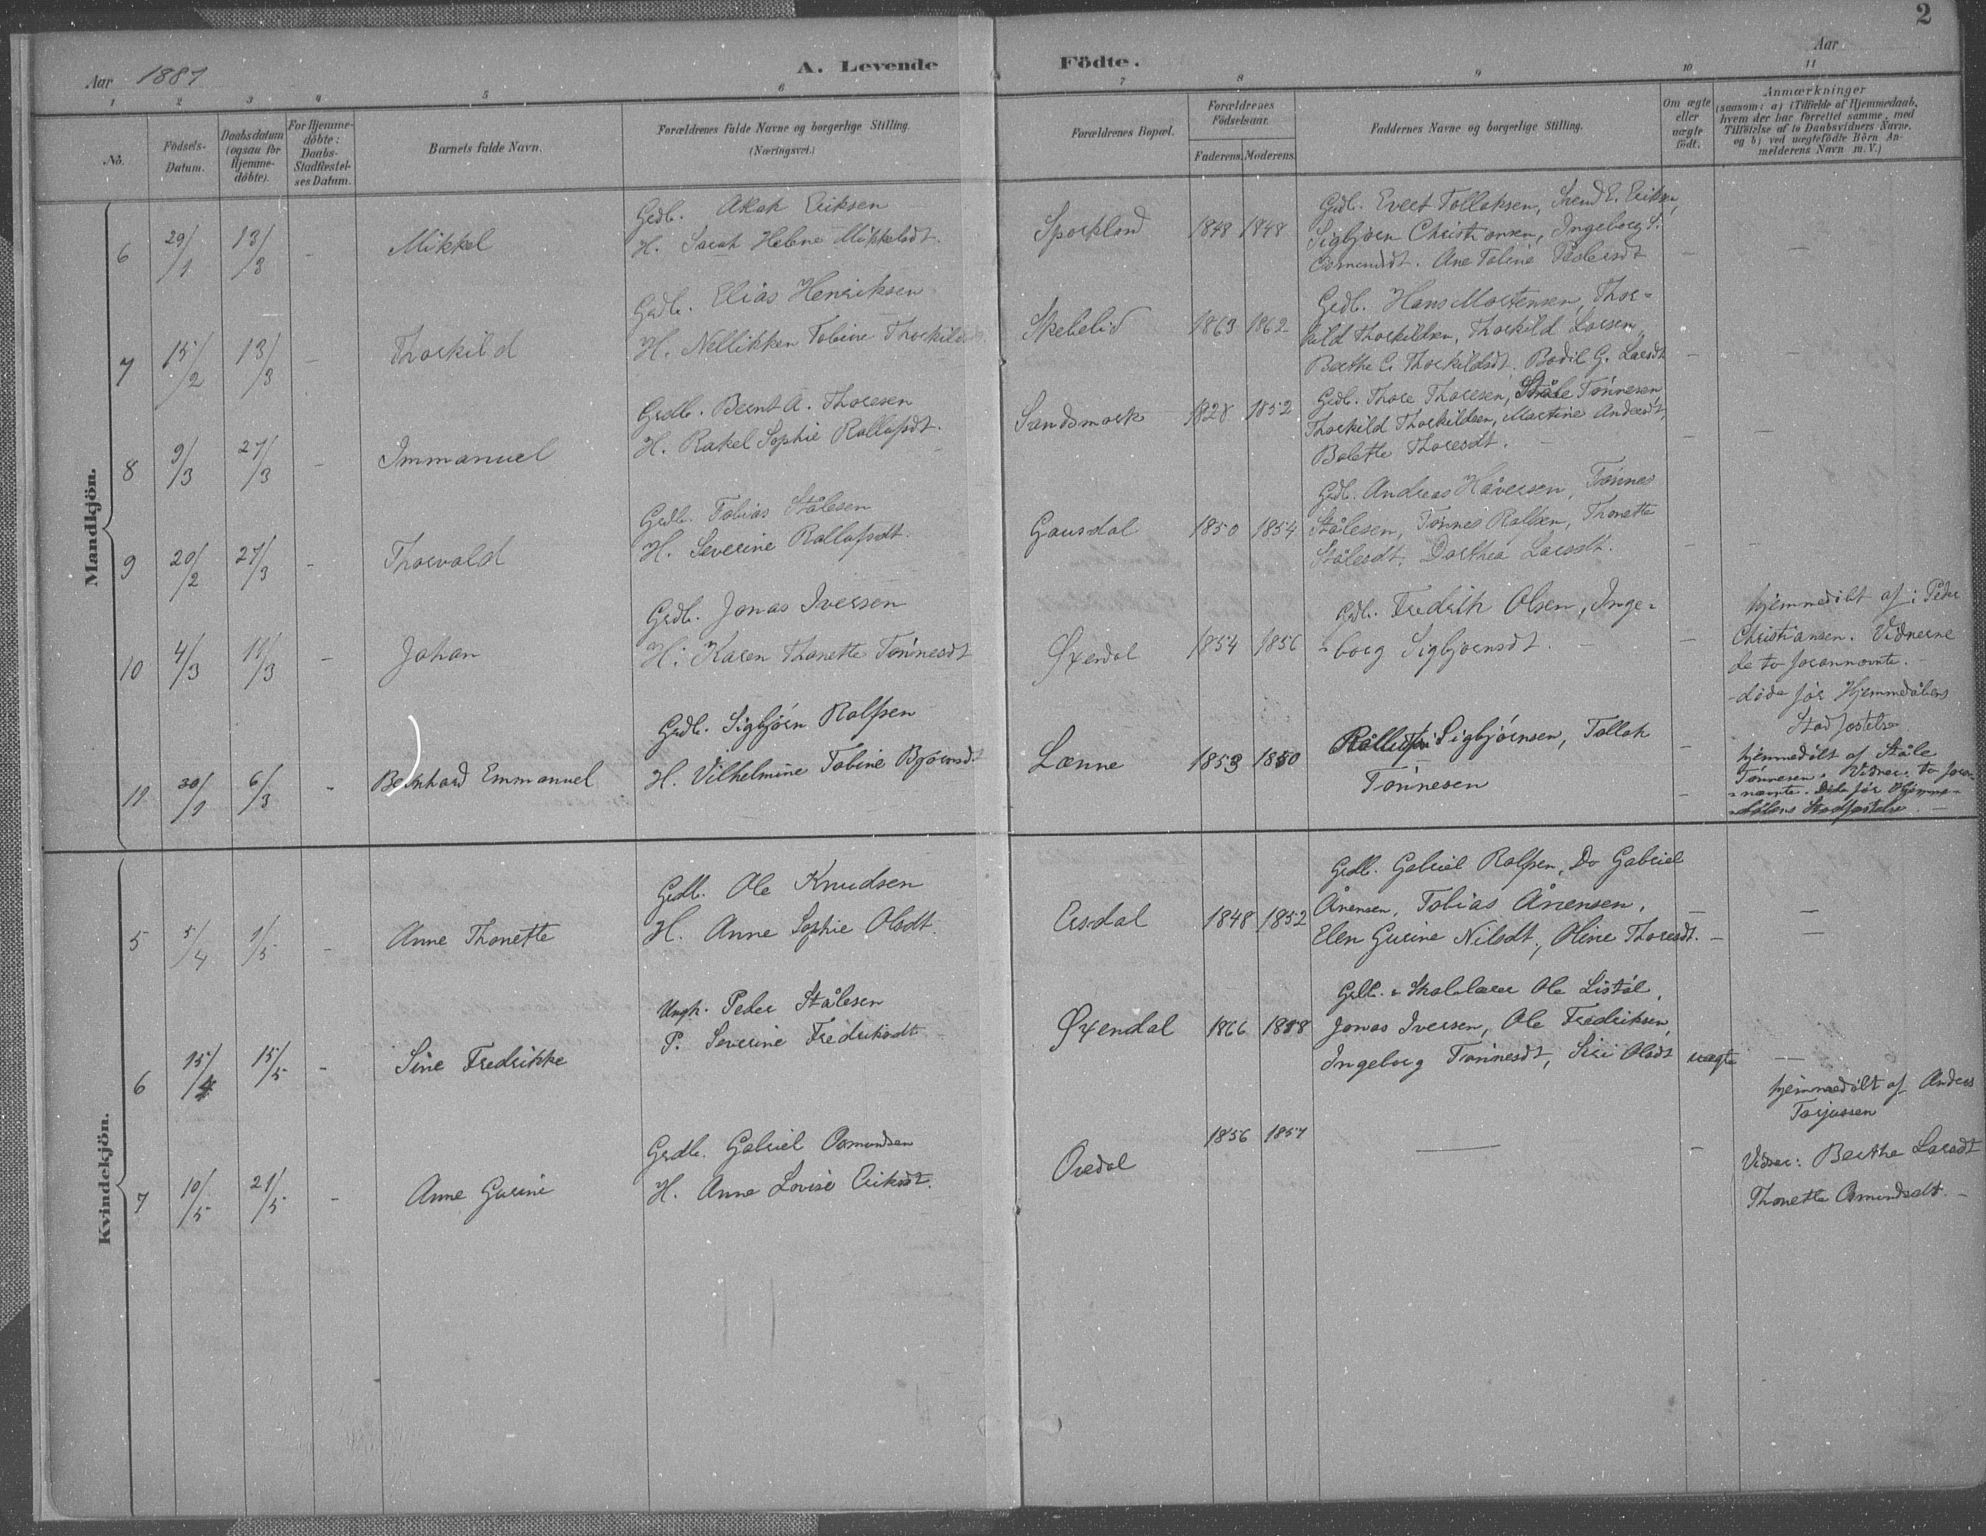 2
Aar 1887
A. Levende Födte.
Aar
1 2 3 4 5 6 7 8 9 10 11
No.
Födsels-
Datum.
Daabsdatum
(ogsaa for
Hjemme-
döbte).
For Hjemme-
döbte:
Daabs-
Stadfæstel-
ses Datum.
Barnets fulde Navn.
Forældrenes fulde Navne og borgerlige Stilling.
(Næringsvei.)
Forældrenes Bopæl.
Forældrenes
Födselsaar.
Faderens. Moderens.
Faddernes Navne og borgerlige Stilling.
Om ægte
eller
uægte
født.
Anmærkninger
(saasom: a) i Tilfælde af Hjemmedaab,
hvem der har forrettet samme, med
Tilföielse af to Daabsvidners Navne.
og b) ved uægtefödte Börn An-
melderens Navn m. V.)
Mandkjön.
6 29/1 13/3 - Mikkel
Grdb. Akah Eriksen
H. Sarah Helene Mikkelsdt.
Sporkland 1848 1848
Grdb. Evert Tollaksen, Svend E. Eriksen,
Sigbjørn Christiansen, Ingeborg S.
Osmundsdt. Ane Tobine Pedersdt
7 15/2 13/3 - Thorkild
Grdb. Elias Henriksen
H. Nellikken Tobine Thorkildsdt
Skebelid 1863 1862
Grdb. Hans Mortensen, Thor-
kild Thorkildsen, Thorkild Larsen,
Berthe C. Thorkildsdt. Bodil G. Larsdt
8 9/3 27/3 - Immanuel
Grdb. Bernt A. Thoresen
H. Rakel Sophie Rollafsdt.
Sandsmork 1828 1852
Grdb. Thore Thoresen, Ståle Tønnesen
Thorkild Thorkildsen, Martine Andersdt,
Bolette Thoresdt.
9 20/2 27/3 - Thorvald
Grdb. Tobias Stålesen
H. Severine Rollafsdt.
Gausdal 1850 1854
Grdb. Andreas Håversen, Tønnes
Stålesen, Tønnes Rolfsen, Thonette
Stålesdt, Dorthea Larsdt.
10 4/3 11/3 - Johan
Grdb. Jonas Iversen
H. Karen Thonette Tønnesdt
Øxendal 1854 1856
Grdb. Fredrik Olsen, Inge-
borg Sigbjørnsdt.
hjemmedøbt af: Peder
Christiansen. Vidnerne
de to forannævnte.
døde før Hjemmedåbens
Stadfæstelse
11 30/1 6/3 - Bernhard Emmanuel
Grdb. Sigbjørn Rolfsen
H. Vilhelmine Tobine Bjørnsdt
Lænne 1853 1850
Sigbjørnsen, Tollak
Tønnesen
hjemmedøbt af Ståle
Tønnesen. Vidner: to foran-
nævnte. Døde før Hjemme-
dåbens Stadfæstelse
Kvindekjön.
5 5/4 1/5 - Anne Thonette
Grdb. Ole Knudsen
H. Anne Sophie Olsdt.
Ersdal 1848 1852
Grdb. Gabriel Rolfsen, Do Gabriel
Ånensen, Tobias Ånensen,
Elen Gurine Nilsdt., Oline Thoresdt.
6 15/4 15/5 - Sine Fredrikke
Ungk. Peder Stålesen
P. Severine Fredriksdt
Øxendal 1866 1858
Grdb. & Skolelærer Ole Listøl,
Jonas Iversen, Ole Fredriksen,
Ingeborg Tønnesdt, Siri Olsdt uægte
7 10/5 21/5 - Anne Gurine
Grdb. Gabriel Osmundsen
H. Anne Lovise Eriksdt.
Oredal 1856 1857
hjemmedøbt af Anders
Torjussen
Vidner: Berthe Larsdt
Thonette Osmundsdt.